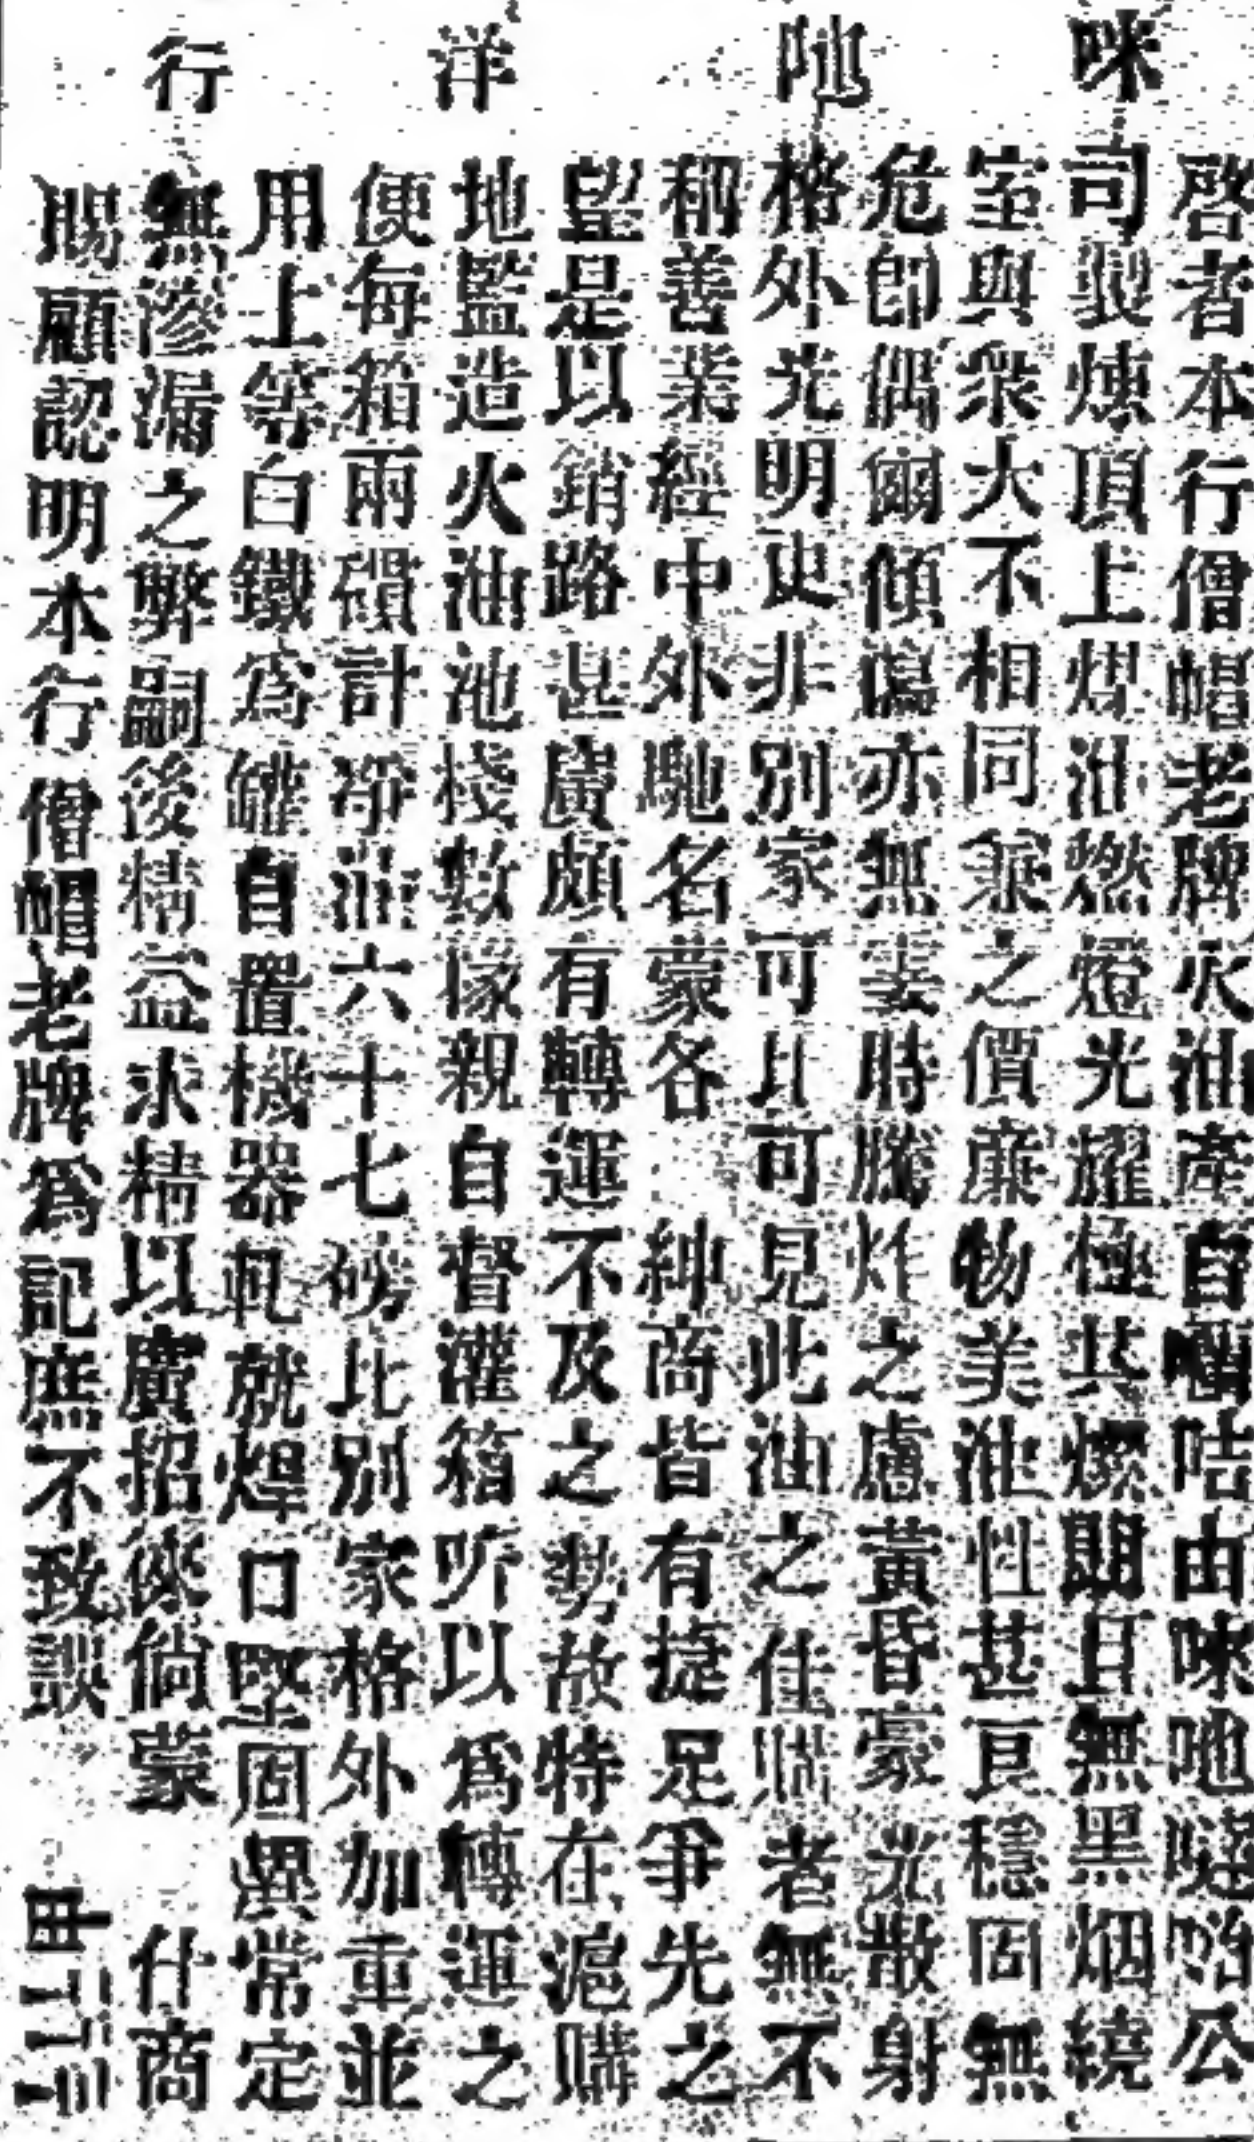 咪吔洋行
啓者本行僧帽老牌火油產自囒咭由咪吔噠哈公
司製煉頂上煤油燃燈光耀極其燦朗且無黑烟繞
室與衆大不相同兼之價廉物美油性甚良穩固無
危即偶爾傾塲亦無妻時騰炸之慮黃昏豪光散射
格外光明史非別家可比可見此油之佳購者無不
稱善業經中外馳名蒙各 紳商皆有捷足爭先之
望是以銷路甚廣頗有轉運不及之勢故特在滬購
地監造火油池棧數塚親自督灌箱听以爲轉運之
便每箱兩磒計淨油六十七磅比別家格外加重並
用上等白鐵爲罐自置機器軋就焊口堅固異常定
無滲漏之弊嗣後精益求精以廣招徠倘蒙 仕商
賜顧認明本行僧帽老牌爲記庶不致誤